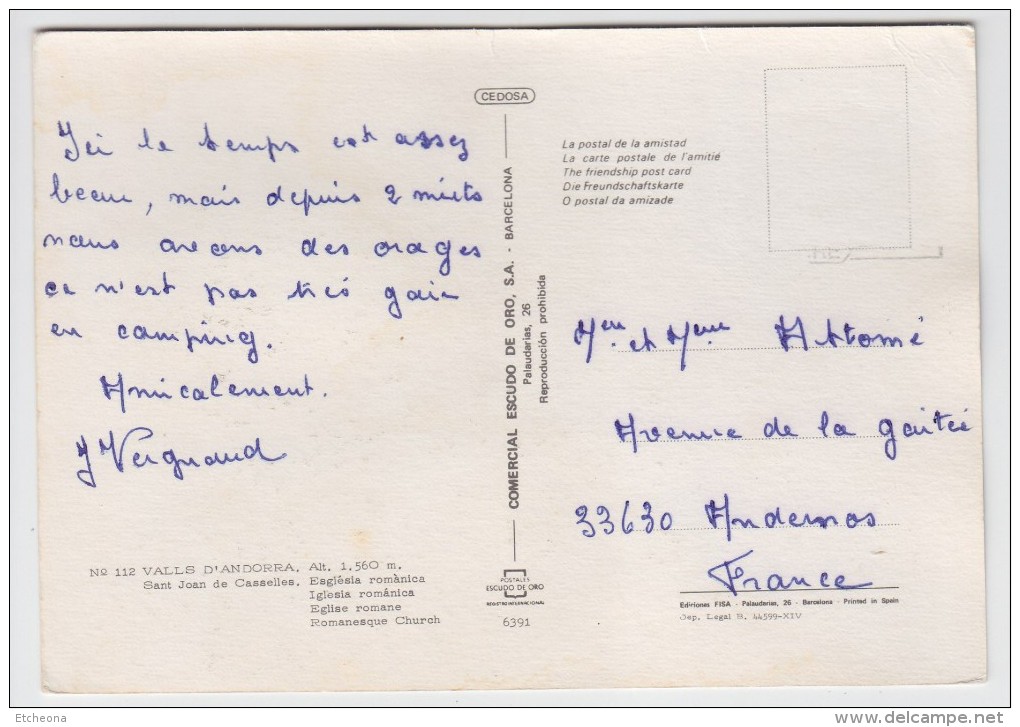 CEDOSA
Ici le temps est assez
beau, mais depuis 2 nuits
nous avons des orages
ce n'est pas très gai
en camping.
Amicalement.
J Vergnaud
Nº 112 VALLS D'ANDORRA, Alt. 1.560 m.
Sant Joan de Casselles. Església romànica
Iglesia románica
Eglise romane
Romanesque Church
COMERCIAL ESCUDO DE ORO, S.A. - BARCELONA
Palaudarias, 26
Reproducción prohibida
POSTALES
ESCUDO DE ORO
REGISTRO INTERNACIONAL
6391
La postal de la amistad
La carte postale de l'amitié
The friendship post card
Die Freundschaftskarte
O postal da amizade
et
Avenue de la gaîté
33630 Andernos
France
Ediriones FISA - Palaudarias, 26 - Barcelona - Printed in Spain
Dep. Legal B. 44599-XIV
Etcheona
www.delcampe.net